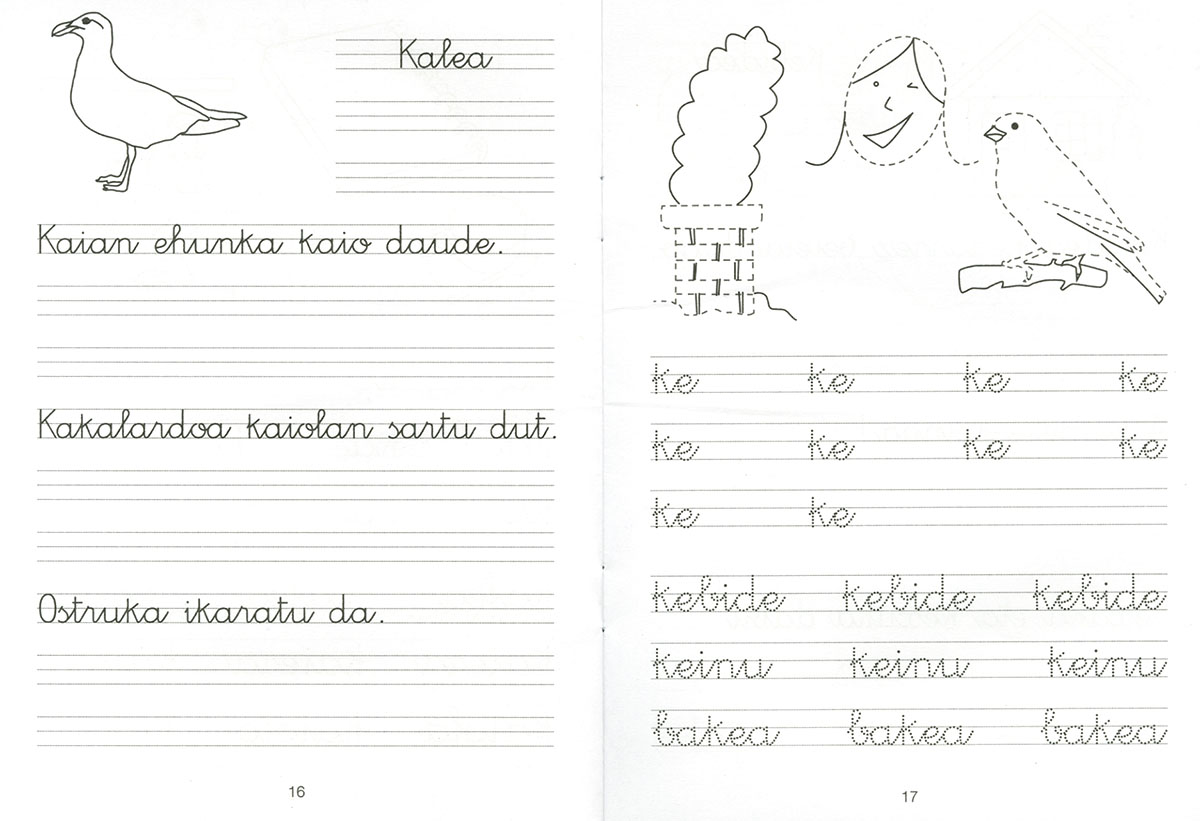 Kalea
Kaian ehunka kaio daude.
Kakalardoa kaiolan sartu dut.
Ostruka ikaratu da.
16
ke ke ke ke
ke ke ke ke
ke ke
kebide kebide kebide
keinu keinu keinu
bakea bakea bakea
17